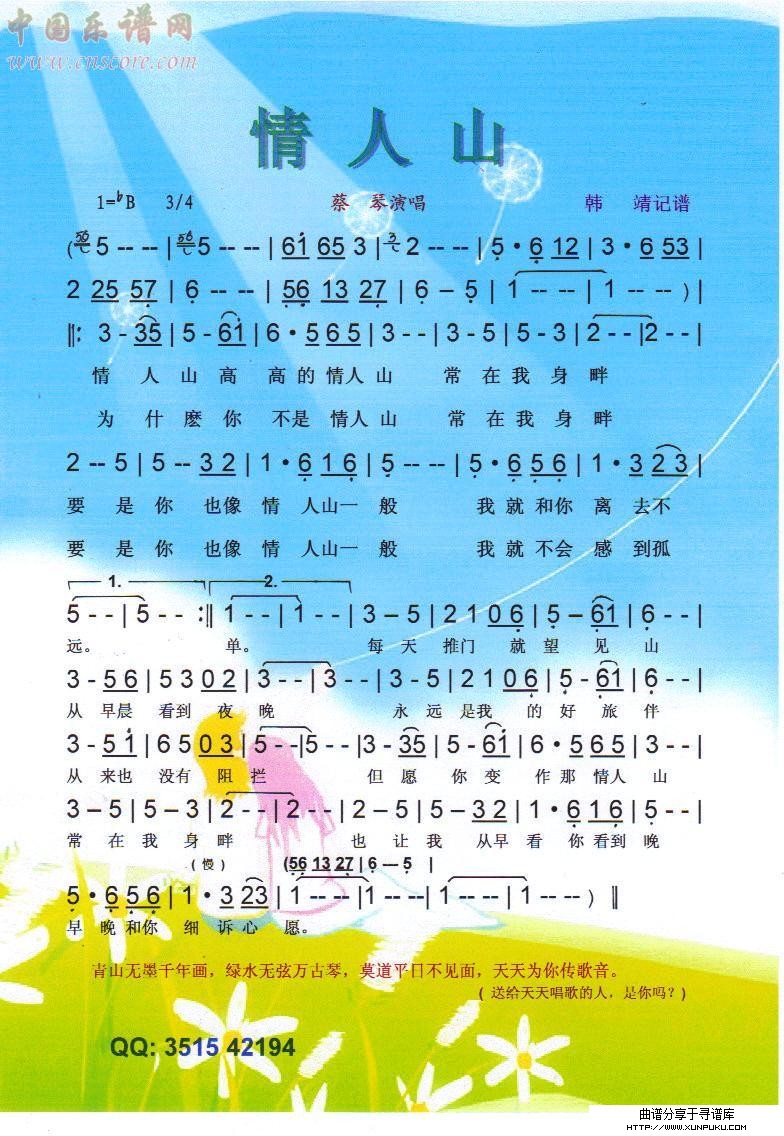 中国乐谱网
www.cnscore.com
情人山
1=♭B 3/4 蔡 琴演唱 韩 靖记谱
(5 -- -- | 5 -- -- | 61 65 3 | 2 -- -- | 5 · 6 12 | 3 · 6 53 |
2 25 57 | 6 -- -- | 56 13 27 | 6 – 5 | 1 -- -- | 1 -- -- ) |
‖: 3 - 35 | 5 - 61 | 6 · 565 | 3 -- | 3-5 | 5-3 | 2-- | 2-- |
情 人 山 高 高 的 情人 山 常 在 我 身 畔
为 什 麽 你 不是 情人 山 常 在 我 身 畔
2 -- 5 | 5 -- 32 | 1 · 616 | 5 -- -- | 2 -- 5 | 5 · 656 | 1 · 323 |
要 是 你 也像 情 人山一 般 我 就 和你 离 去不
要 是 你 也像 情 人山一 般 我 就 不会 感 到孤
1. 2.
5 - - | 5 - - :‖ 1 - - | 1 - - | 3 – 5 | 21 06 | 5 – 61 | 6 - - |
远。 单。 每 天 推门 就 望 见 山
3 - 56 | 53 02 | 3 -- | 3 -- | 3 - 5 | 21 06 | 5 - 61 | 6 -- |
从 早晨 看到 夜 晚 永 远 是我 的 好 旅 伴
3 - 51 | 65 03 | 5 -- | 5 -- | 3 - 35 | 5 - 61 | 6 · 565 | 3 -- |
从 来也 没有 阻 拦 但 愿 你 变 作 那 情人 山
3 – 5 | 5 – 3 | 2 -- | 2 -- | 2 – 5 | 5 – 32 | 1 · 616 | 5 -- |
常 在 我 身 畔 也 让 我 从早 看 你 看到 晚
(慢) (56 13 27 | 6 — 5 |
5 · 656 | 1 · 323 | 1 -- -- | 1 -- -- | 1 -- -- | 1 -- -- ) ‖
早 晚 和你 细 诉 心 愿。
青山无墨千年画，绿水无弦万古琴，莫道平日不见面，天天为你传歌音。
( 送给天天唱歌的人，是你吗？)
QQ: 3515 42194
曲谱分享于寻谱库
HTTP://WWW.XUNPUKU.COM